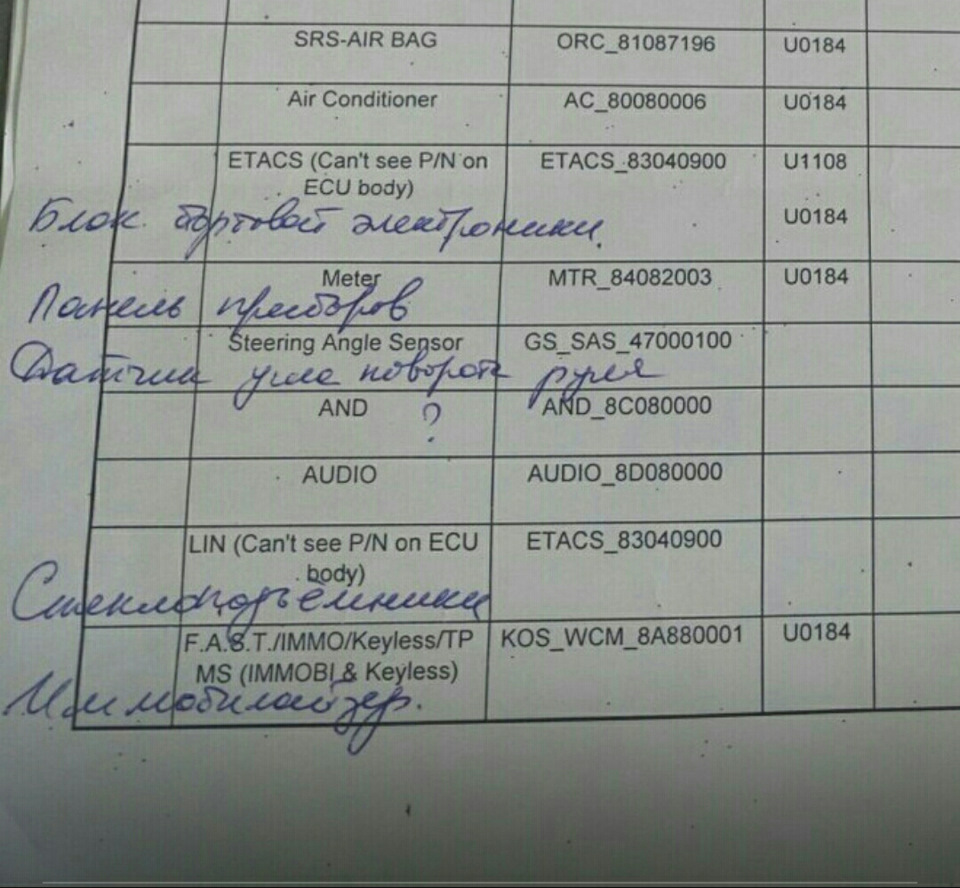 SRS-AIR BAG ORC_81087196 U0184
Air Conditioner AC_80080006 U0184
ETACS (Can't see P/N on ETACS_83040900 U1108
ECU body)
U0184
Блок бортовой электроники.
Meter MTR_84082003 U0184
Панель приборов
Steering Angle Sensor GS_SAS_47000100
Датчик угла поворота руля
AND ? AND_8C080000
AUDIO AUDIO_8D080000
LIN (Can't see P/N on ECU ETACS_83040900
body)
Стеклоподъёмники
F.A.S.T./IMMO/Keyless/TP KOS_WCM_8A880001 U0184
MS (IMMOBI & Keyless)
Иммобилайзер.